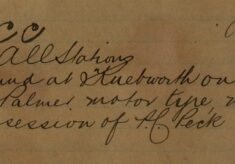 CC
All Stations
und at Knebworth on
Palmer, motor type, n
session of A.C. Peck